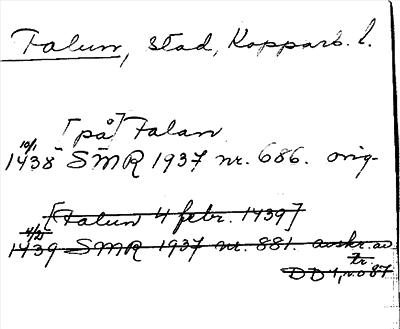 Falun, stad, Kopparb. l.
[på] Falan
10/1
1438 SMR 1937 nr. 686. orig.
[Falun 4 febr. 1439]
4/2
1439 SMR 1937 nr. 881. avskr. av
tr.
DD 1, n:o 87